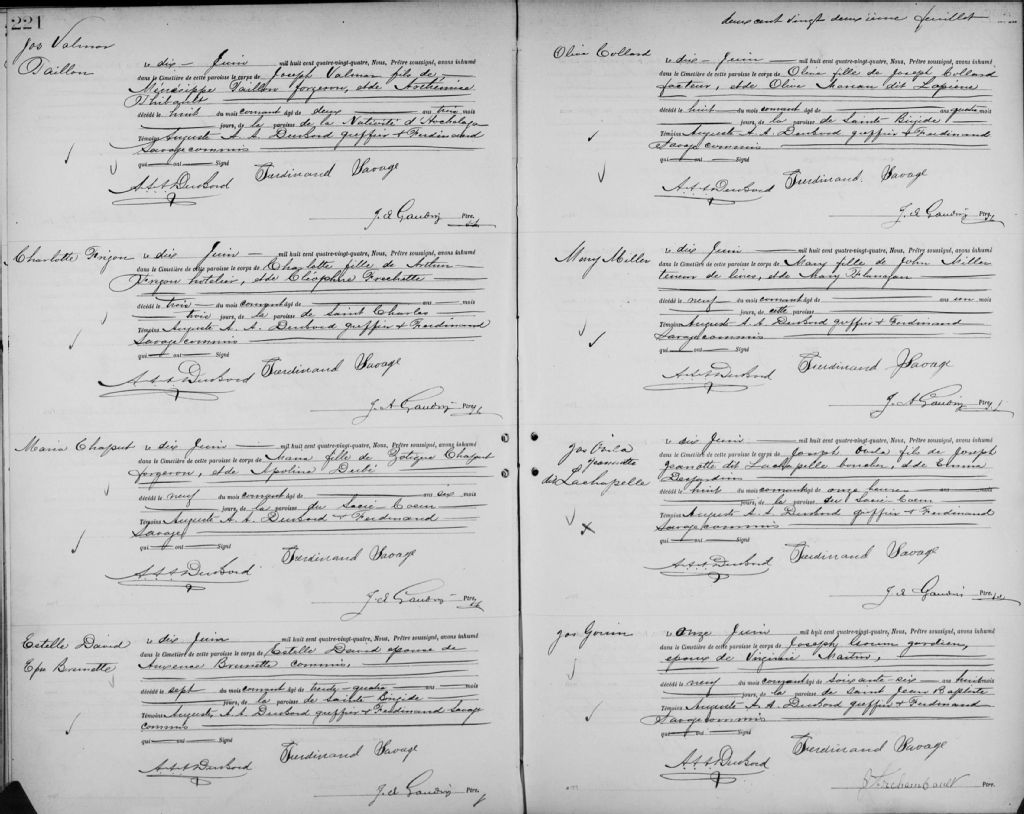 221
Jos Valmor
Taillon
Le dix — Juin — mil huit cent quatre-vingt-quatre, Nous, Prêtre soussigné, avons inhumé
dans le Cimetière de cette paroisse le corps de Joseph Valmar fils de
Taillon forgeron, et de Arthemise
Thibault
décédé le huit du mois courant âgé de deux ans trois mois
jours, de la paroisse de la Nativité d'Hochelaga
Témoins Auguste A. A. DeuBord greffier & Ferdinand
Savage commis
qui — ont — Signé
A.A.A DeuBord Ferdinand Savage
Ptre.
Charlotte
Le dix Juin — mil huit cent quatre-vingt-quatre, Nous, Prêtre soussigné, avons inhumé
dans le Cimetière de cette paroisse le corps de Charlotte fille de Arthur
hotelier, et de Cléophire Frechette
décédé le trois — du mois courant âgé de — ans — mois
trois jours, de la paroisse de Saint Charles
Témoins Auguste A. A. DeuBord greffier & Ferdinand
Savage commis
qui — ont — Signé
A.A.A DeuBord Ferdinand Savage
Ptre.
Maria Chaput
Le dix Juin — mil huit cent quatre-vingt-quatre, Nous, Prêtre soussigné, avons inhumé
dans le Cimetière de cette paroisse le corps de Maria fille de Zotique Chaput
forgeron, et de Apoline
décédé le neuf du mois courant âgé de — ans six mois
jours, de la paroisse du Sacré-Coeur
Témoins Auguste A. A. DeuBord & Ferdinand
Savage
qui — ont — Signé
A.A.A DeuBord Ferdinand Savage
Ptre.
Estelle David
Eps Brunette
Le dix Juin mil huit cent quatre-vingt-quatre, Nous, Prêtre soussigné, avons inhumé
dans le Cimetière de cette paroisse le corps de Estelle David epouse de
Brunette commis,
décédé le sept du mois courant âgé de trente-quatre
jours, de la paroisse de Sainte Brigide
Témoins Auguste A. A. DeuBord greffier & Ferdinand Savage
commis
qui — ont — Signé
A.A.A DeuBord Ferdinand Savage
Ptre.
deux cent vingt deuxième feuillet
Olive Collard
Le dix — Juin — mil huit cent quatre-vingt-quatre, Nous, Prêtre soussigné, avons inhumé
dans le Cimetière de cette paroisse le corps de Olive fille de Joseph Collard
facteur, et de Olive dit Lapierre
décédé le huit du mois courant âgé de — ans quatre mois
jours, de la paroisse de Sainte Brigide
Témoins Auguste A. A. DeuBord greffier & Ferdinand
Savage commis
qui — ont — Signé
A.A.A DeuBord Ferdinand Savage
Ptre.
Mary Miller
Le dix Juin — mil huit cent quatre-vingt-quatre, Nous, Prêtre soussigné, avons inhumé
dans le Cimetière de cette paroisse le corps de Mary fille de John Miller
teneur de livres, et de Mary Flanagan
décédé le neuf du mois courant âgé de — ans un mois
jours, de cette paroisse
Témoins Auguste A. A. DeuBord greffier & Ferdinand
Savage commis
qui — ont — Signé
A.A.A DeuBord Ferdinand Savage
Ptre.
Jos Ovila
Jeanotte
dit Lachapelle
Le dix Juin — mil huit cent quatre-vingt-quatre, Nous, Prêtre soussigné, avons inhumé
dans le Cimetière de cette paroisse le corps de Joseph Ovila fils de Joseph
Jeanotte dit Lachapelle boucher, et de Emma
Desjardins
décédé le huit du mois courant âgé de onze heures
jours, de la paroisse du Sacré-Coeur
Témoins Auguste A. A. DeuBord greffier & Ferdinand
Savage commis
qui — ont — Signé
A.A.A DeuBord Ferdinand Savage
Ptre.
Jos Gouin
Le onze Juin — mil huit cent quatre-vingt-quatre, Nous, Prêtre soussigné, avons inhumé
dans le Cimetière de cette paroisse le corps de Joseph Gouin gardien,
epoux de Virginie Martin,
décédé le neuf du mois courant âgé de soixante-six — ans huit mois
jours, de la paroisse de Saint Jean Baptiste
Témoins Auguste A. A. DeuBord greffier & Ferdinand
Savage commis
qui — ont — Signé
A.A.A DeuBord Ferdinand Savage
Archambault Ptre.